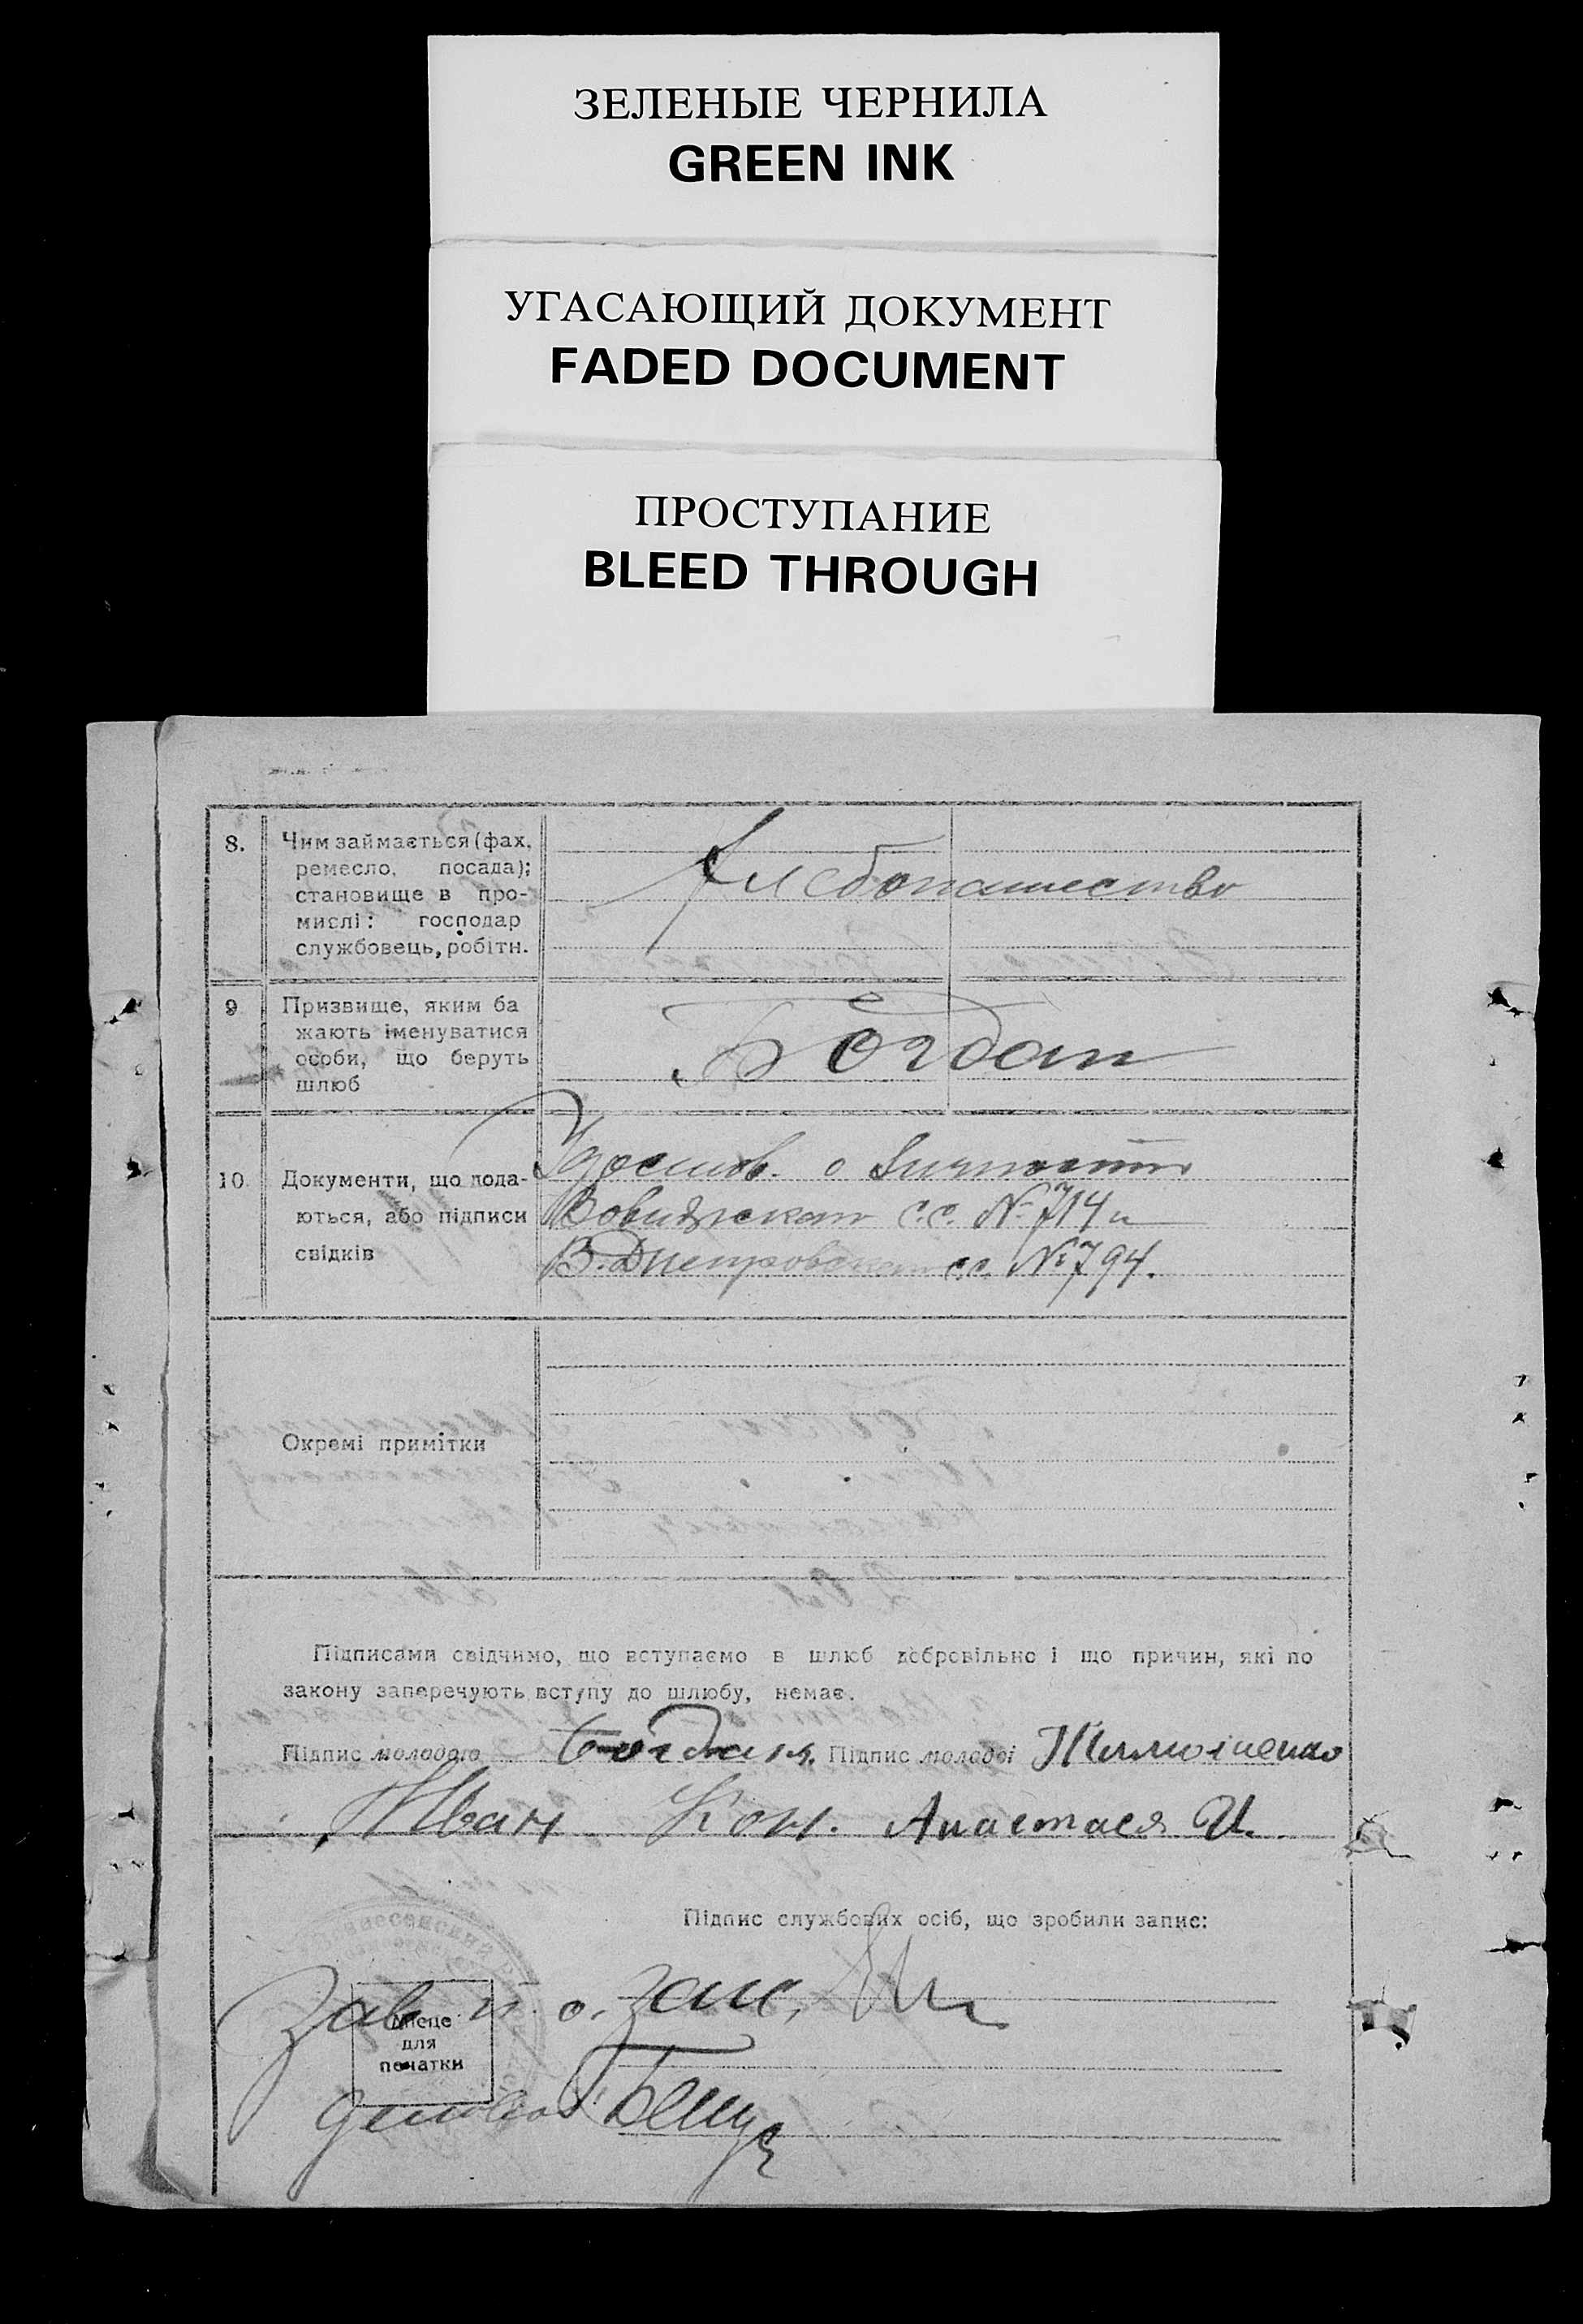 ЗЕЛЕНЫЕ ЧЕРНИЛА
GREEN INK
УГАСАЮЩИЙ ДОКУМЕНТ
FADED DOCUMENT
ПРОСТУПАНИЕ
BLEED THROUGH
8. Чим займається (фах,
ремесло, посада);
становище в про-
мислі: господар
службовець, робітн.
Хлебопашество
9 Призвище, яким ба
жають іменуватися
особи, що беруть
шлюб
Богдан
10. Документи, що пода-
ються, або підписи
свідків
Удостов. о личности
с.с. № 714 и
В. Днепровской с.с. № 794.
Окремі примітки
Підписами свідчимо, що вступаємо в шлюб добровільно і що причин, які по
закону заперечують вступу до шлюбу, немає.
Підпис молодого Богдан. Підпис молодої Тимошенко
Иван Кон. Анастасея И.
Підпис службових осіб, що зробили запис:
Зав. п. о. загс,
Місце
для
печатки